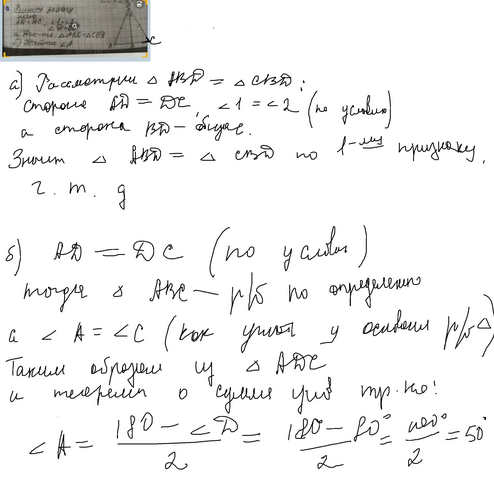 Решить задачу
а) Рассмотрим △ ABD = △ CBD:
сторона AD = DC, ∠1 = ∠2 (по условию)
а сторона BD – общая.
Значит △ ABD = △ CBD по 1-му признаку.
ч. т. д
б) AD = DC (по условию)
тогда △ ABC – р/б по определению
а ∠ A = ∠C (как углы у основания р/б △)
Таким образом из △ ADC
и теоремы о сумме углов тр-ка:
∠A = 180 - ∠D / 2 = 180 - 80° / 2 = 100° / 2 = 50°